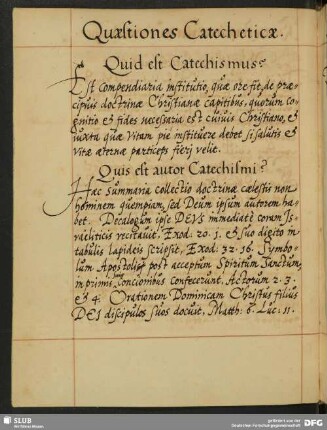 Quæstiones Catecheticæ.
Quid est Catechismus?
Est Compendiaria institutio, quæ ore fit, de præ-
cipuis doctrinæ Christianæ capitibus, quorum co-
gnitio & fides necessaria est cuiuis Christiano, &
iuxta quæ vitam pie instituere debet si salutis &
vitæ æternæ particeps fierj velit.
Quis est autor Catechismi?
Hæc summaria collectio doctrinæ cœlestis non
hominem quempiam, sed Deum ipsum autorem ha-
bet. Decalogum ipse DEVS immediatè coram Is-
raëliticis recitauit, Exod. 20. j. & suo digito in
tabulis lapideis scripsit, Exod. 32. 36. Symbo-
lum Apostolj post acceptum Spiritum Sanctum,
in primis Concionibus confecerunt, Actorum 2. 3.
& 4. Orationem Dominicam Christus filius
DEI discipulos suos docuit, Matth. 6. Luc. 11.
SLUB
DFG